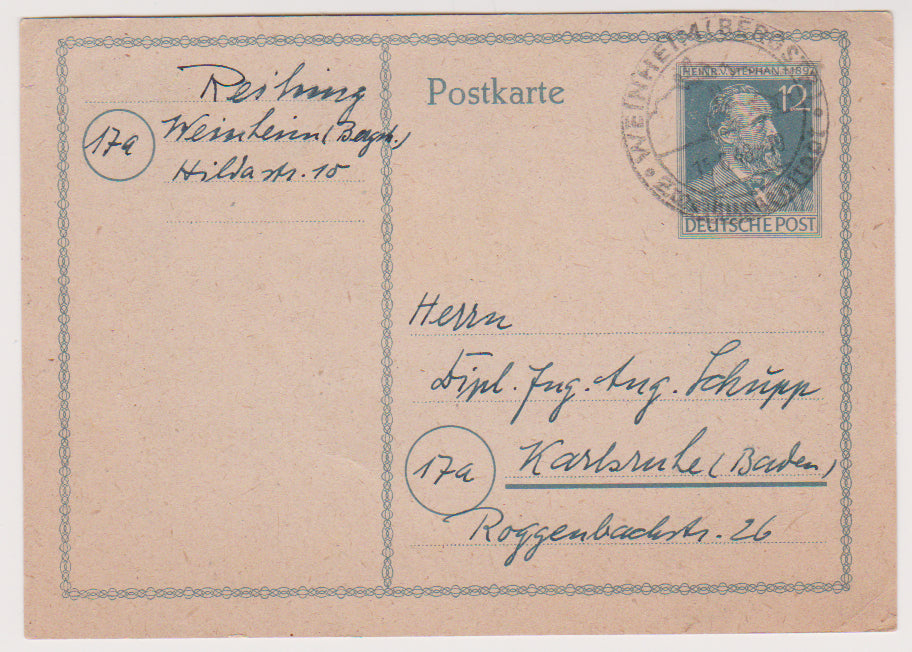 Reihing
17a
Weinheim (Bergstr.)
Hildastr. 15
Postkarte
WEINHEIM (BERGSTR)
HEINR. V. STEPHAN † 1897
12
DEUTSCHE POST
Herrn
Dipl. Ing. Aug. Schupp
17a
Karlsruhe (Baden)
Roggenbachstr. 26